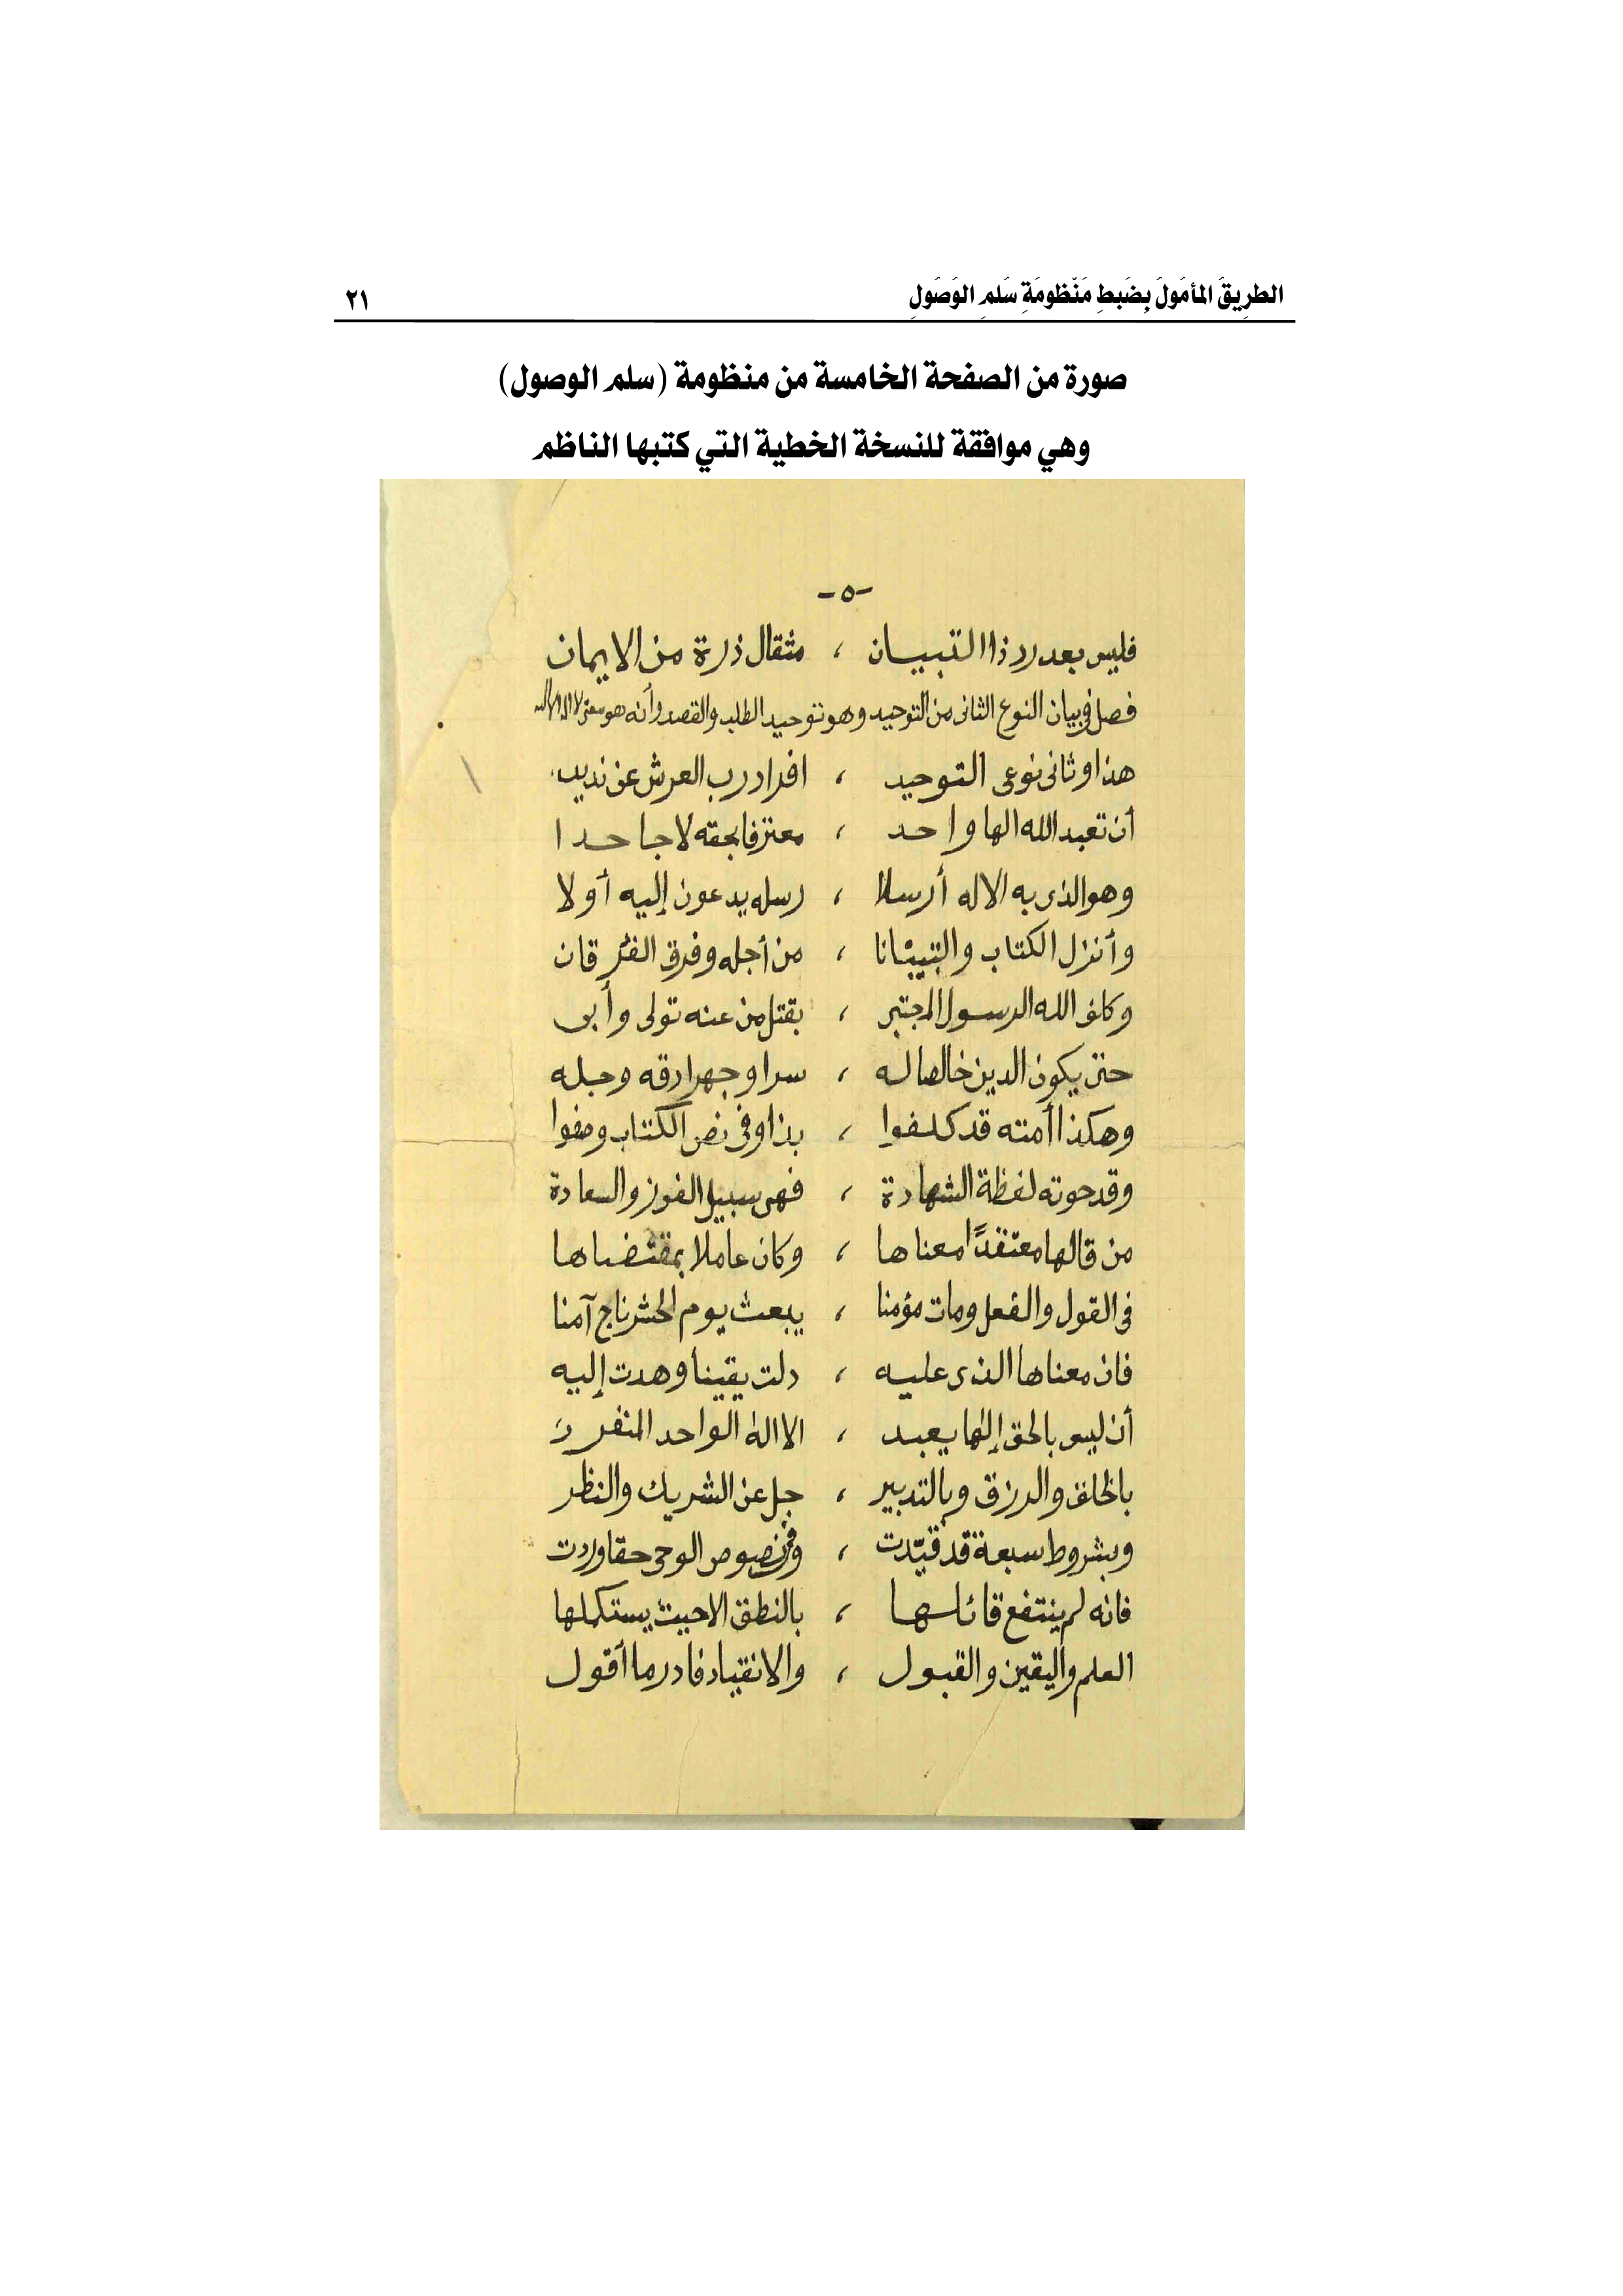 الطريق المأمول بضبط منظومة سلم الوصول ٢١
صورة من الصفحة الخامسة من منظومة (سلم الوصول)
وهي موافقة للنسخة الخطية التي كتبها الناظم
-٥-
فليس بعد رد ذا التبيان ، مثقال ذرة من الايمان
فصل في بيان النوع الثانى من التوحيد وهو توحيد الطلب والقصد وأنه هو معنى لا اله الا الله
هذا وثانى نوعى التوحيد ، افراد رب العرش عن نديد
أن تعبد الله الها واحد ، معترفا بحقه لا جاحدا
وهو الذى به الاله أرسلا ، رسله يدعون إليه أولا
وأنزل الكتاب والتبيانا ، من أجله وفرق الفرقان
وكلف الله الرسول المجتبى ، بقتل من عنه تولى وأبى
حتى يكون الدين خالصا له ، سرا وجهرا دقه وجله
وهكذا أمته قد كلفوا ، بذا وفى نص الكتاب وصفوا
وقد حوته لفظة الشهادة ، فهى سبيل الفوز والسعادة
من قالها معتقدًا معناها ، وكان عاملا بمقتضاها
فى القول والفعل ومات مؤمنا ، يبعث يوم الحشر ناج آمنا
فان معناها الذى عليه ، دلت يقينا وهدت إليه
أن ليس بالحق إله يعبد ، الا اله الواحد المنفرد
بالخلق والرزق وبالتدبير ، جل عن الشريك والنظر
وبشروط سبعة قد قيّدت ، وفى نصوص الوحى حقا وردت
فانه لم ينتفع قائلها ، بالنطق الا حيث يستكملها
العلم واليقين والقبول ، والانقياد فادر ما أقول